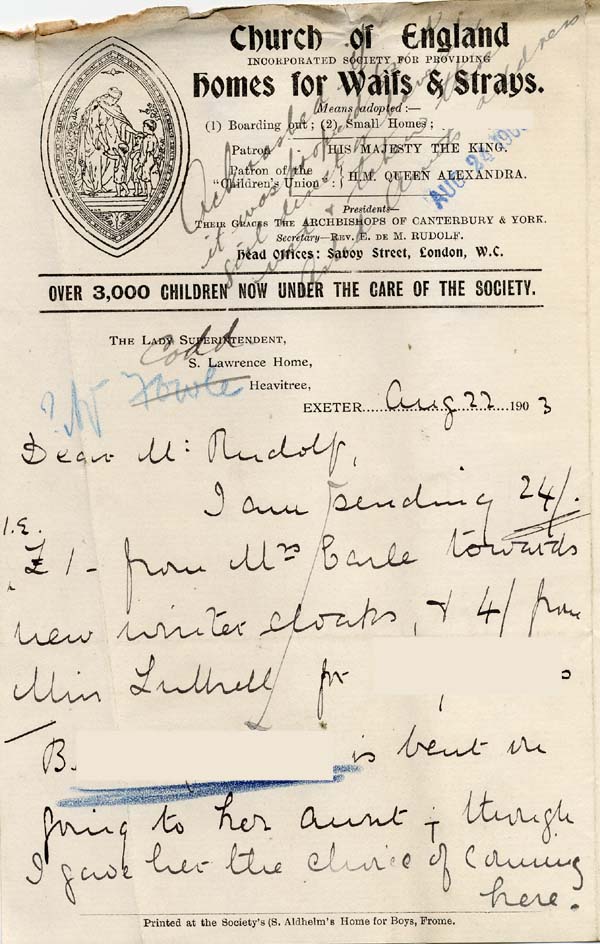 Church of England
INCORPORATED SOCIETY FOR PROVIDING
Homes for Waifs & Strays.
Means adopted:—
(1) Boarding out; (2) Small Homes;
Patron - HIS MAJESTY THE KING.
Patron of the "Children's Union":} H.M. QUEEN ALEXANDRA.
AUG 24 190
Presidents—
THEIR GRACES THE ARCHBISHOPS OF CANTERBURY & YORK.
Secretary—REV. E. DE M. RUDOLF.
Head Offices: Savoy Street, London, W.C.
Acknowledged
it was proposed
address
OVER 3,000 CHILDREN NOW UNDER THE CARE OF THE SOCIETY.
THE LADY SUPERINTENDENT,
Codd
S. Lawrence Home,
? W Fowle
Heavitree,
EXETER....Aug 22....1903
Dear Mr: Rudolf,
I am sending 24/.
i.e.
£1- from Mrs Earle towards
new winter cloaks, & 4/ from
Miss Luttrell for
B. is bent on
going to her aunt - though
I gave her the choice of coming
here.
Printed at the Society's (S. Aldhelm's Home for Boys, Frome.